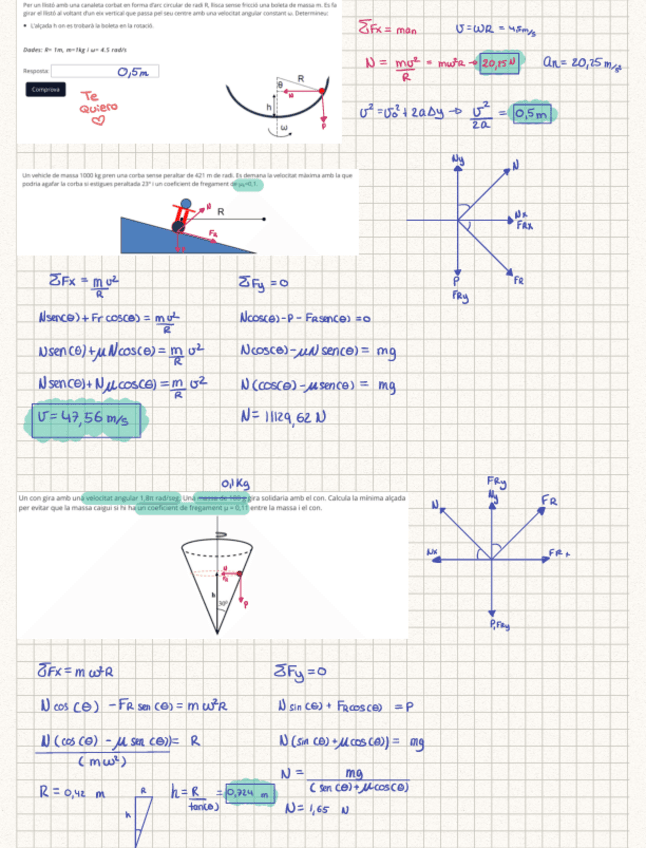 Per un llistó amb una canaleta corbat en forma d'arc circular de radi R, llisca sense fricció una boleta de massa m. Es fa
girar el llistó al voltant d'un eix vertical que passa pel seu centre amb una velocitat angular constant ω. Determineu:
• L'alçada h on es trobarà la boleta en la rotació.
Dades: R= 1m, m=1kg i ω= 4.5 rad/s
Resposta: 0,5m
Comprova
Te
quiero
R
θ
N
h
P
ω
ΣFx = man
v=ωR = 4,5m/s
N = mv²/R = mω²R → 20,25 N
an = 20,25 m/s²
v² = v₀² + 2aΔy → v²/2a = 0,5m
Un vehicle de massa 1000 kg pren una corba sense peraltar de 421 m de radi. Es demana la velocitat màxima amb la que
podria agafar la corba si estigues peraltada 23° i un coeficient de fregament de μ=0,1.
N
R
FR
Ny
N
Nx
FRx
P
FRy
FR
ΣFx = m v²/R
ΣFy = 0
Nsen(θ) + Fr cos(θ) = m v²/R
Ncos(θ) - P - FRsen(θ) = 0
Nsen(θ) + μNcos(θ) = m/R v²
Ncos(θ) - μN sen(θ) = mg
Nsen(θ) + Nμcos(θ) = m/R v²
N(cos(θ) - μsen(θ)) = mg
v = 47,56 m/s
N = 11129,62 N
0,1 Kg
Un con gira amb una velocitat angular 1,8π rad/seg. Una massa de 100 g gira solidaria amb el con. Calcula la mínima alçada
per evitar que la massa caigui si hi ha un coeficient de fregament μ = 0,11 entre la massa i el con.
N
R
h
30°
P
FRy
Ny
N
FR
Nx
FRx
P, FRy
ΣFx = m ω²R
ΣFy = 0
N cos (θ) - FR sen (θ) = m ω²R
N sin (θ) + FR cos (θ) = P
N (cos (θ) - μ sen (θ)) / (mω²) = R
N (sin (θ) + μ cos (θ)) = mg
N = mg / (sen (θ) + μ cos(θ))
R = 0,42 m
R
h
h = R/tan(θ) = 0,724 m
N = 1,65 N